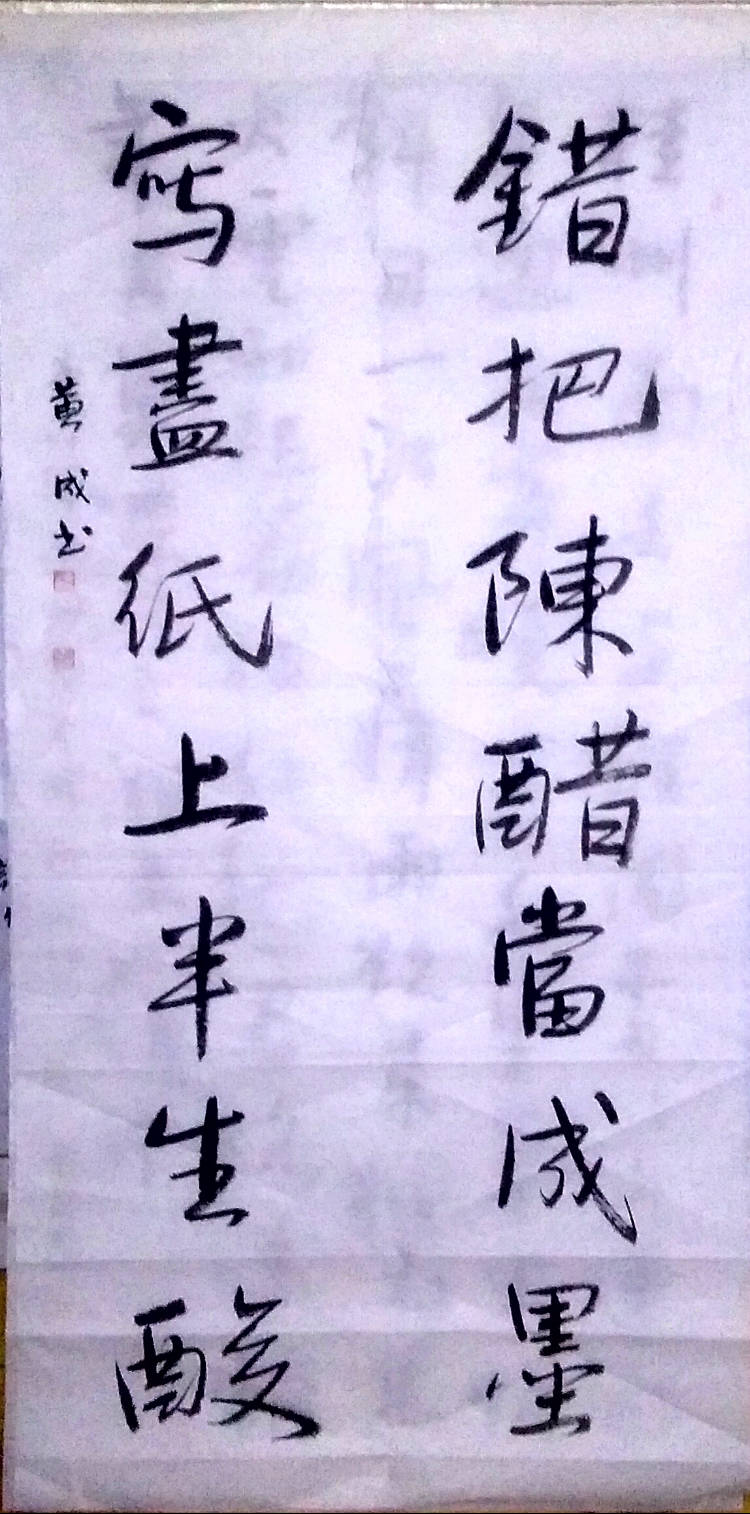 錯把陳醋當成墨
寫盡紙上半生酸
黄成书